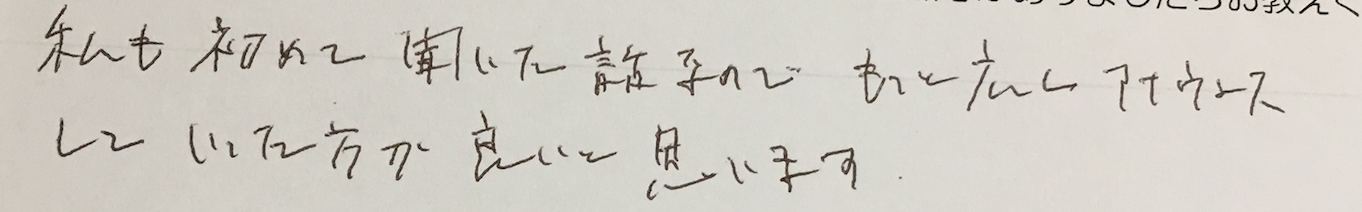 たらお教えく
私も初めて聞いた話なので もっと広くアナウンス
していった方が良いと思います